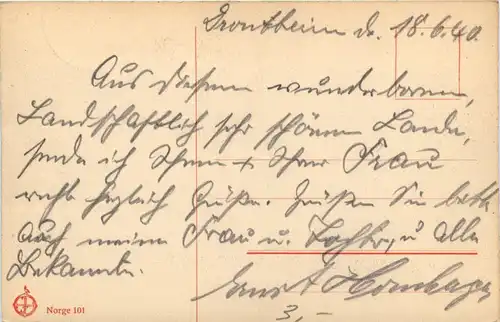 Drontheim d. 18.6.40.
Aus diesem wunderbaren,
Landschaftlich sehr schönen Lande,
sende ich Ihnen + Ihrer Frau
recht herzlich Grüße. Grüßen Sie bitte
auch meine Frau u. Tochter, u alle
Bekannte.
Ernst
3,-
Norge 101